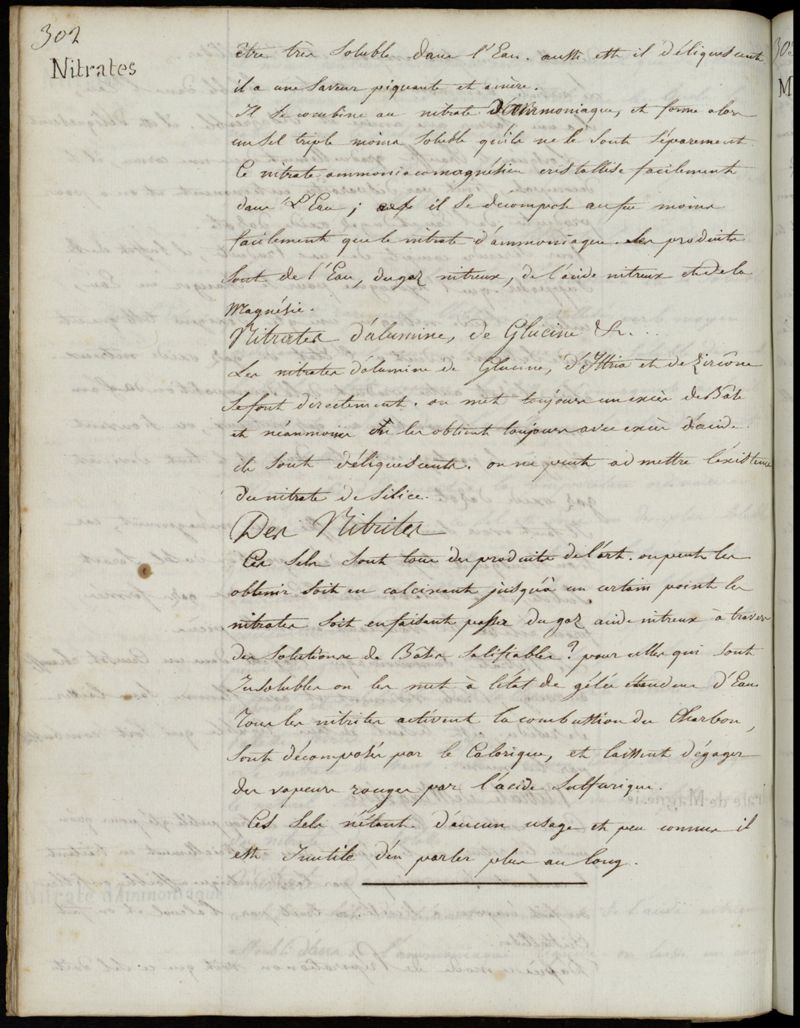 302
Nitrates
être très soluble dans l'Eau. aussi est il déliquescent
il a une saveur piquante et amère.
Il se combine au nitrate D'ammoniaque, et forme alors
un sel triple moins soluble qu'ils ne le sont séparement.
Ce nitrate ammoniacomagnésien cristallise facilement
dans L'Eau; il se décompose au feu moins
facilement que le nitrate d'ammoniaque. les produits
sont de l'Eau, du gaz nitreux, de l'acide nitreux et de la
Magnésie.
Nitrates d'alumine, de Glucine &c...
Les nitrates d'alumine de Glucine, d'Ittria et de Zircône
se font directement. on met toujours un excès de Base
et néanmoins on les obtient toujours avec excès d'acide.
ils sont déliquescents. on ne peut admettre l'existence
du nitrate de silice.
Des Nitrites
Ces sels sont tous des produits de l'art. on peut les
obtenir soit en calcinant jusqu'à un certain point les
nitrates soit en faisant passer du gaz acide nitreux à travers
des solutions de Bâses salifiables? pour celles qui sont
Insolubles on les met à l'état de gélée étendues d'Eau
Tous les nitrites activent la combustion du Charbon,
sont décomposés par le Calorique, et laissent dégager
des vapeurs rouges par l'acide sulfurique.
Ces sels n'étant d'aucun usage et peu connus il
est Inutile d'en parler plus au long.
30
M